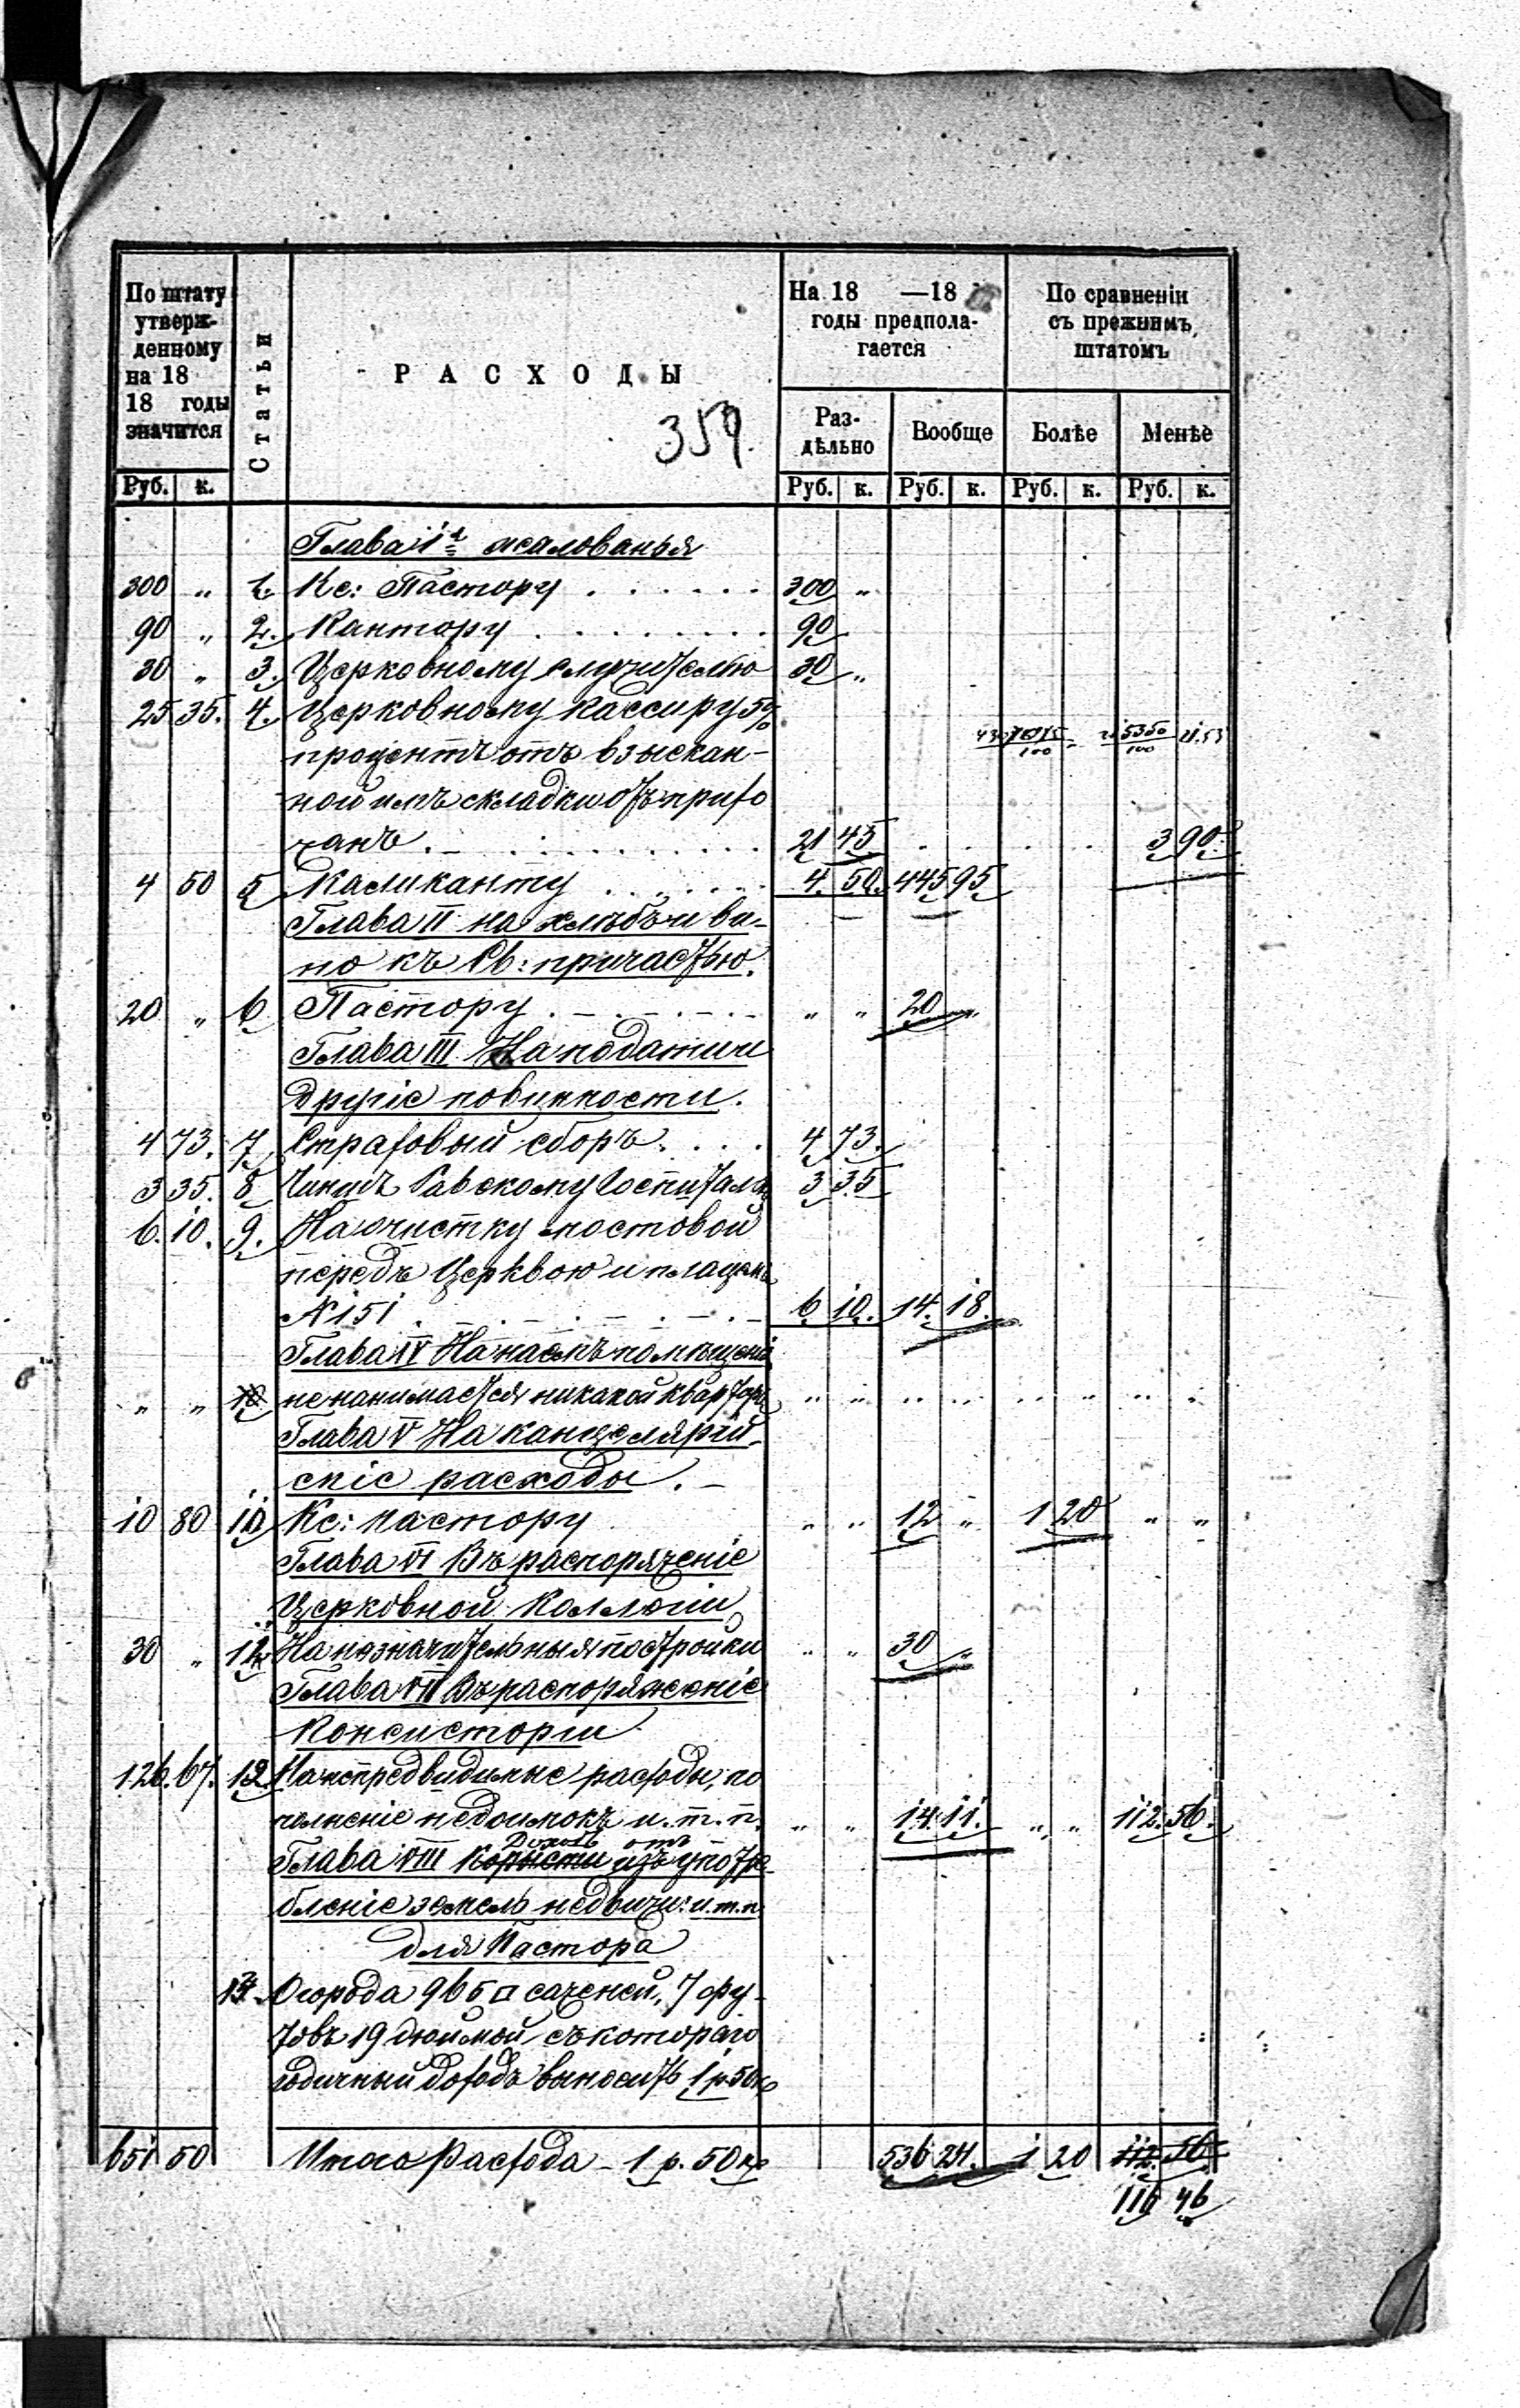 По штату утверж-денному на 18 18 годы значится
Статьи
РАСХОДЫ
359.
На 18 —18 годы предпола-гается
По сравненіи съ прежнимъ штатомъ
Раз-дѣльно Вообще Болѣе Менѣе
Руб. к. Руб. к. Руб. к. Руб. к. Руб. к.
Глава 1я жалованья
300 „ 1. Кс: Пастору . . . . . . 300 „
90 „ 2. Кантору . . . . . . . . 90
30 „ 3. Церковному служителю 30 „
25 35. 4. Церковному Кассиру 5%
процентъ отъ взыскан-
ной имъ складки отъ прихо
жанъ. 21 45 3 90
4 50 5 Каликанту . . . . . . 4. 50. 445 95
Глава II на хлѣбъ и ви-
но къ Св: причастью.
20 „ 6 Пастору . „ „ 20 „
Глава III На подати и
другіе повинности.
4 73. 7 Страховый сборъ. . . . 4 73.
3 35. 8 Чиншъ Равскому Госпиталю 3 35
6. 10. 9. На чистку мостовой
передъ Церквою и плацомъ
№ 151 . 6 10. 14. 18.
Глава IV На наемъ помѣщенія
„ „ 10 не нанимается никакой квартиры „ „ „ „ „ „ „ „
Глава V На канцелярій-
скіе расходы. –
10 80 10 Кс: пастору „ „ 12 „ 1 20 „ „
Глава VI Въ распоряженіе
Церковной Коллегіи
30 „ 12 На назначительныя постройки „ „ 30 „
Глава VII Въ распоряженіе
Консисторіи
126. 67. 13 На непредвидимые расходы, по
полненіе недоимокъ и. т. п. „ „ 14. 11. „ „ 112. 56.
Доходъ отъ
Глава VIII Корысти изъ употре-
бленіе земель недвижи: и. т. п.
для Пастора
13. Огорода 965 □ саженей, 7 фу-
товъ 19 дюймой съ котораго
годичный доходъ выноситъ 1 р 50 к
651 50 Итого Расхода – 1 р. 50 к 536 24. 1 20 112. 56
116 46